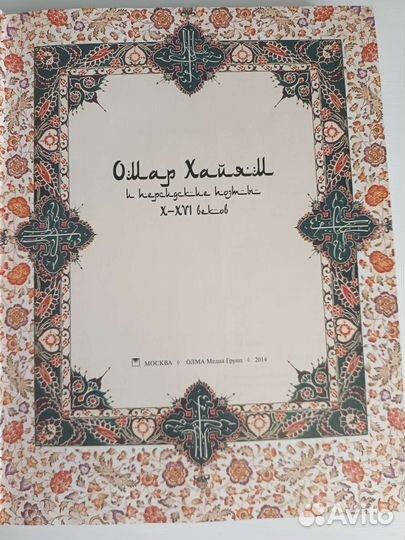 Омар Хайям
и персидские поэты
X–XVI веков
МОСКВА ◊ ОЛМА Медиа Групп ◊ 2014
Avito